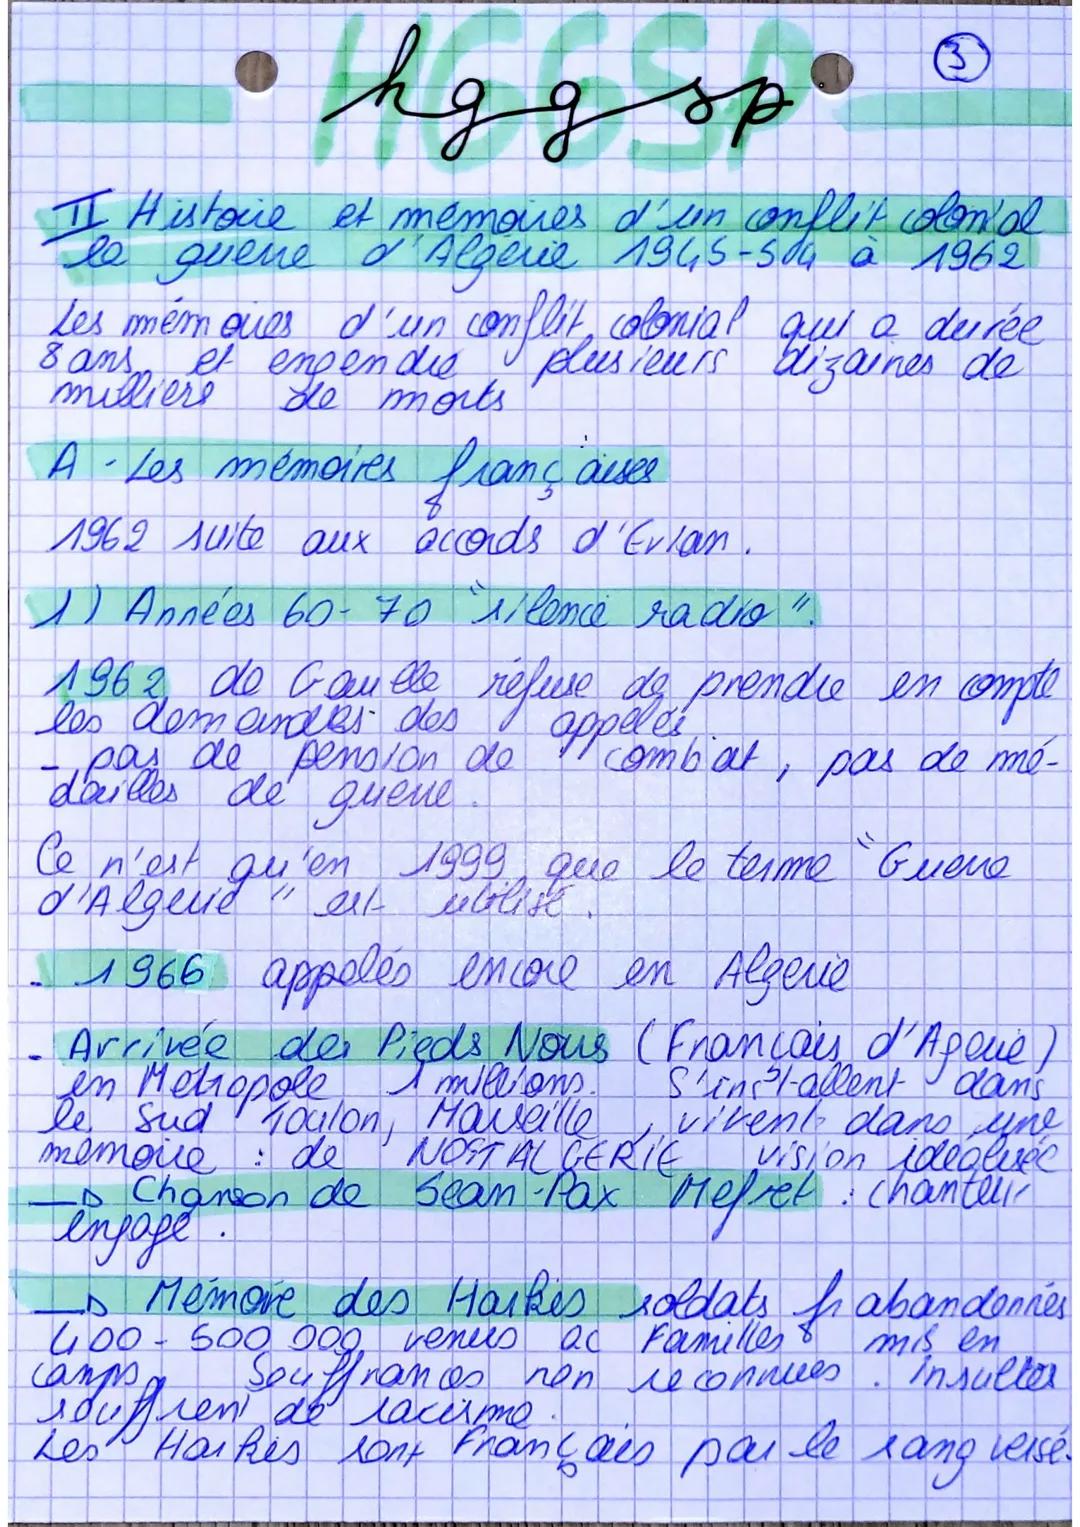 HGGSP
hggsp
3
II Histoire et mémoires d'un conflit colonial
la guerre d'Algérie 1945-54 à 1962
Les mémoires d'un conflit colonial qui a durée
8 ans, et engendre plusieurs dizaines de
milliers de morts
A - Les mémoires françaises
1962 suite aux accords d'Evian.
1) Années 60-70 "silence radio".
1962 de Gaulle refuse de prendre en compte
les demandes des appelés
- pas de pension de combat, pas de mé-
dailles de guerre.
Ce n'est qu'en 1999 que le terme "Guerre
d'Algérie" est utilisé.
- 1966 appelés encore en Algérie
- Arrivée des Pieds Noirs (Français d'Agerie)
en Métropole 1 millions. S'installent dans
le Sud Toulon, Marseille, vivent dans une
mémoire : de NOSTALGERIE vision idéalisée
→ Chanson de Jean-Pax Mefret : chanteur
engagé.
→ Mémoire des Harkis soldats fr abandonnés
400-500 000 venus ac familles mis en
camps, Souffrances non reconnues. insultes
souffrent de racisme.
Les Harkis sont Français par le sang versé.